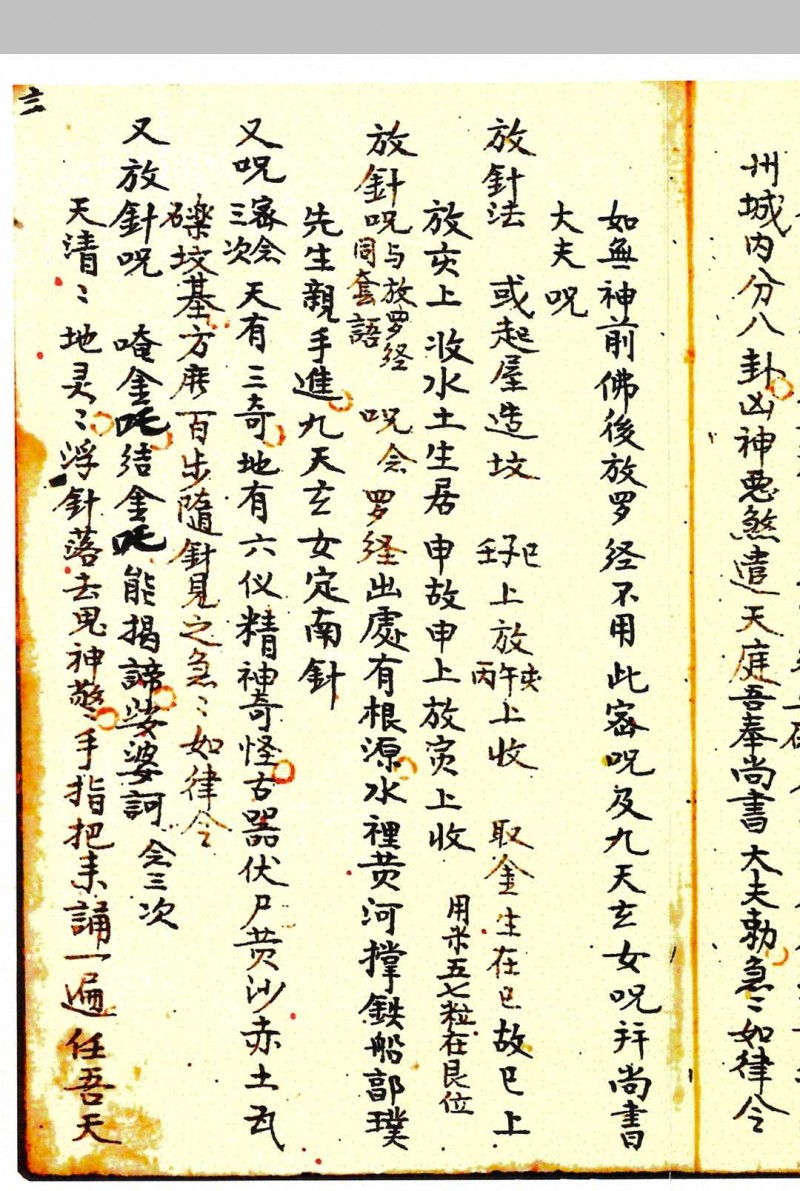 州城内分八卦凶神悪煞遣天庭吾奉尚書大夫勅急〻如律令
如無神前佛後放罗经不用此密呪及九天玄女呪并尚書
大夫呪
放針法 或起屋造坟 壬子巳上放丙午上收 取金生在巳故巳上
放亥上收水土生居申故申上放寅上收 用米五七粒在艮位
放針呪 与放罗经同套語 呪念 罗经出處有根源水裡黄河撑鉄船郭璞
先生親手進九天玄女定南針
又呪 密念三次 天有三奇地有六仪精神奇怪古器伏尸黄沙赤土瓦
礫坟基方庶百步隨針見之急〻如律令
又放針呪 唵金吒结金吒能揭諦娑婆訶 念三次
天清〻地灵〻浮針落去鬼神驚〻手指把来誦一遍任吾天
三